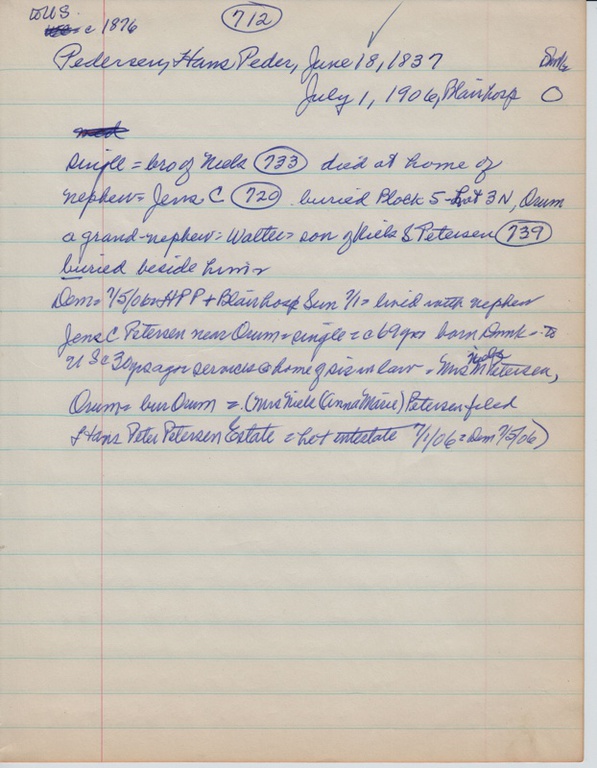 to US 712
c 1876
Pedersen, Hans Peder, June 18, 1837 Dmk
July 1, 1906, Blair hosp O
single = bro of Niels (733) died at home of
nephew = Jens C (720) buried Block 5 - Lot 3 N, Orum
a grand-nephew = Walter = son of Niels S Petersen (739)
buried beside him =
Dem = 7/5/06 = HPP + Blair hosp Sun 7/1 = lived with nephew
Jens C Petersen near Orum = single = c 69 yrs born Dmk = to
U S c 30 yrs ago = services @ home of sis in law = Mrs Niels Petersen,
Orum = bur Orum = (Mrs Niels (Anna Marie) Petersen filed
Hans Peter Petersen Estate = not intestate 7/1/06 = Dem 7/5/06)